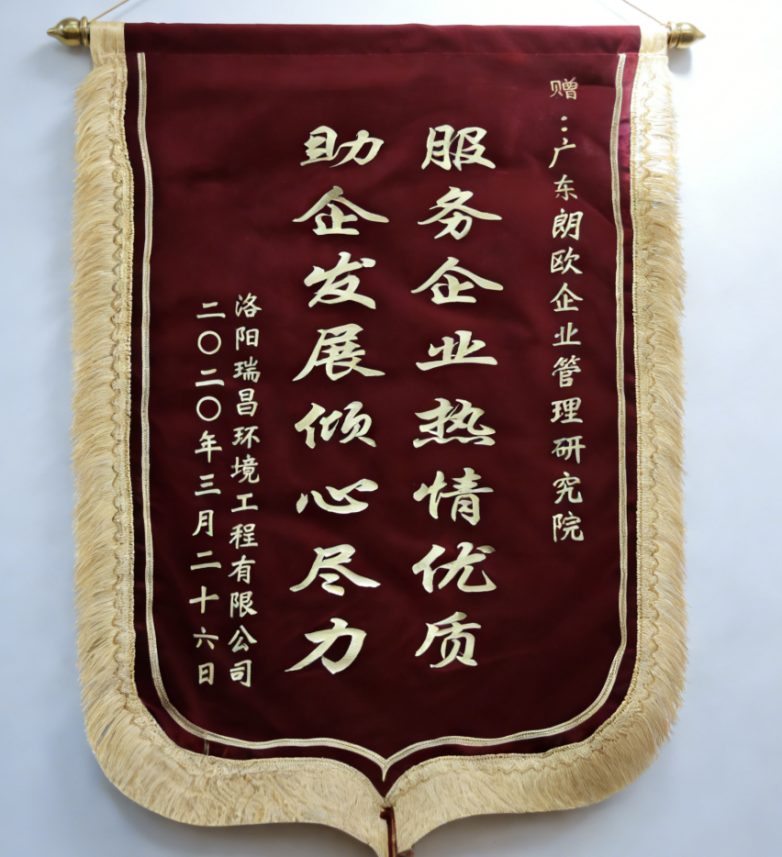 赠：广东朗欧企业管理研究院
服务企业热情优质
助企发展倾心尽力
洛阳瑞昌环境工程有限公司
二〇二〇年三月二十六日